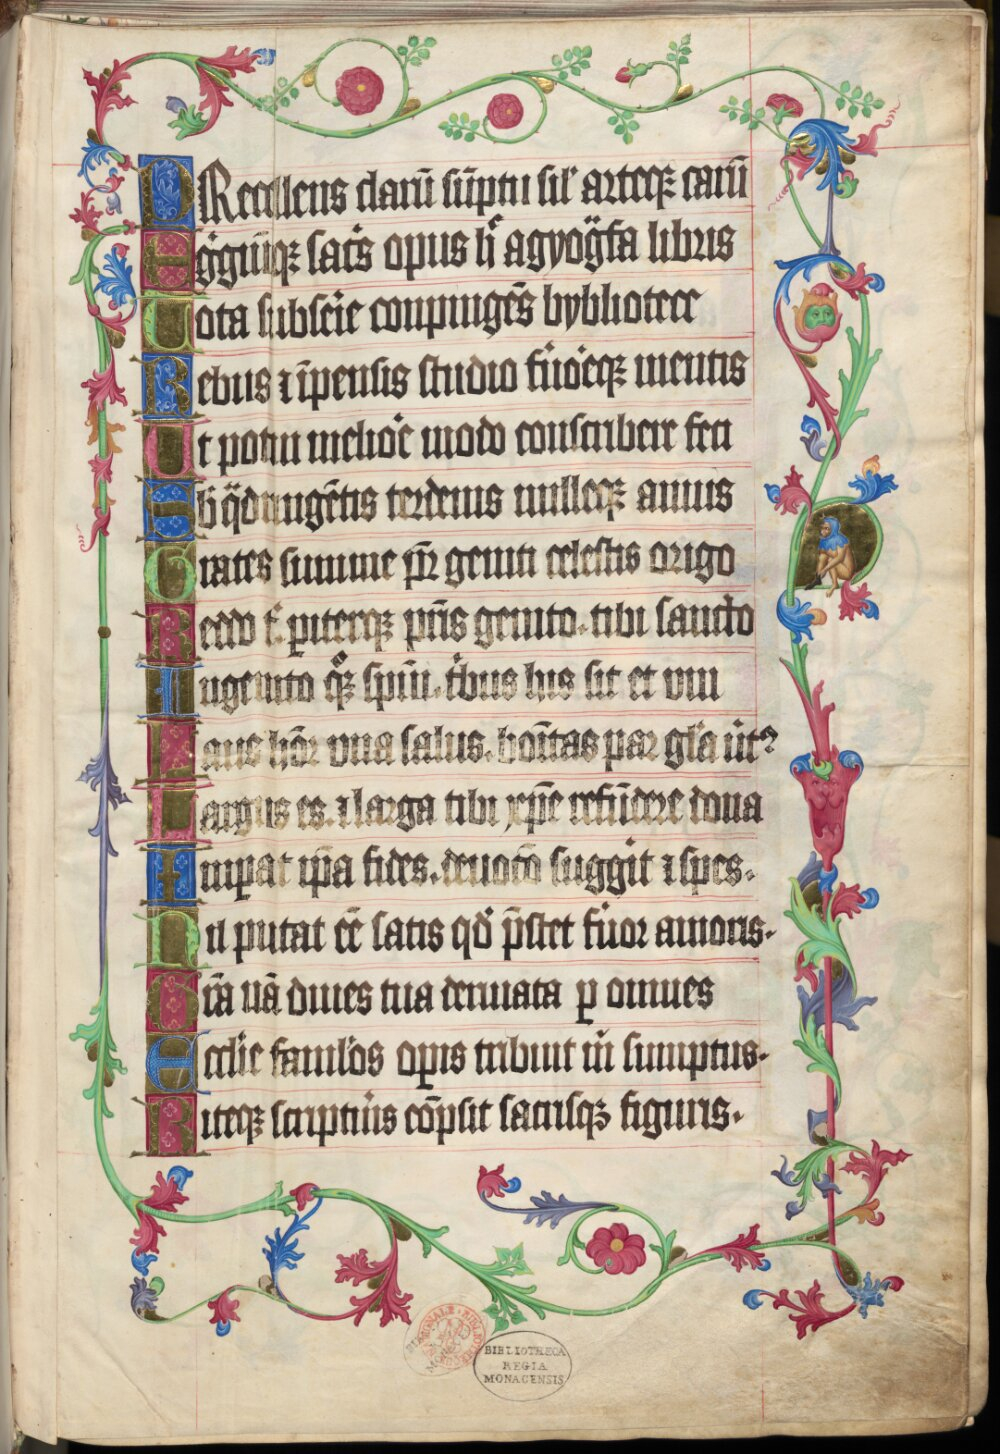 PRecellens clarū sūptu sil' arteqꝫ carū
Eg̊giūqꝫ satis opus h̊ agyogͣfa libris
Tota subscīe conpingēs bybliotece
Rebus ⁊ īpensis studio f'uoēqꝫ mentis
Ut potui melioē modo conscribere feci
Sb qͣdringētis terdenis milleqꝫ annis
Grates summe pr̄ geniti celestis origo
Reddo tͥ. piterqꝫ pr̄is genito. tibi sancto
Ingenito qꝫ spiūi. tͥbus his sit et vni
Laus hōor vna salus. boītas par gl̄a ūtꝰ
Largus es. ⁊ larga tibi xp̄e refūdere dona
Imꝑat ip̄a fides. deuotō suggit ⁊ spes.
Nil putat ēē satis qd̄ p̄stet f'uor amoris.
Gr̄a nā diues tua deriuata ꝑ omnes
Eccl'ie famlos opis tribuit m̄ sumptus.
Riteqꝫ scriptuīs cōpsit sacrisqꝫ figuris.
BIBLIOTHECA
REGIA
MONACENSIS